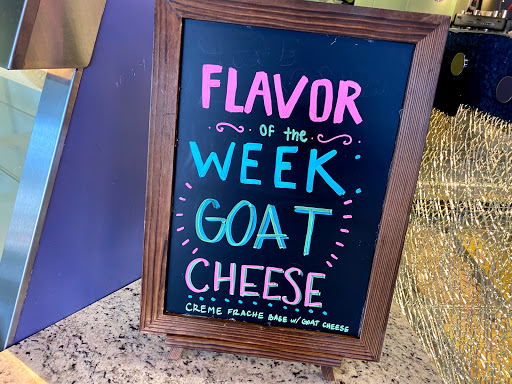 FLAVOR
OF the
WEEK
GOAT
CHEESE
CREME FRACHE BASE w/ GOAT CHEESE